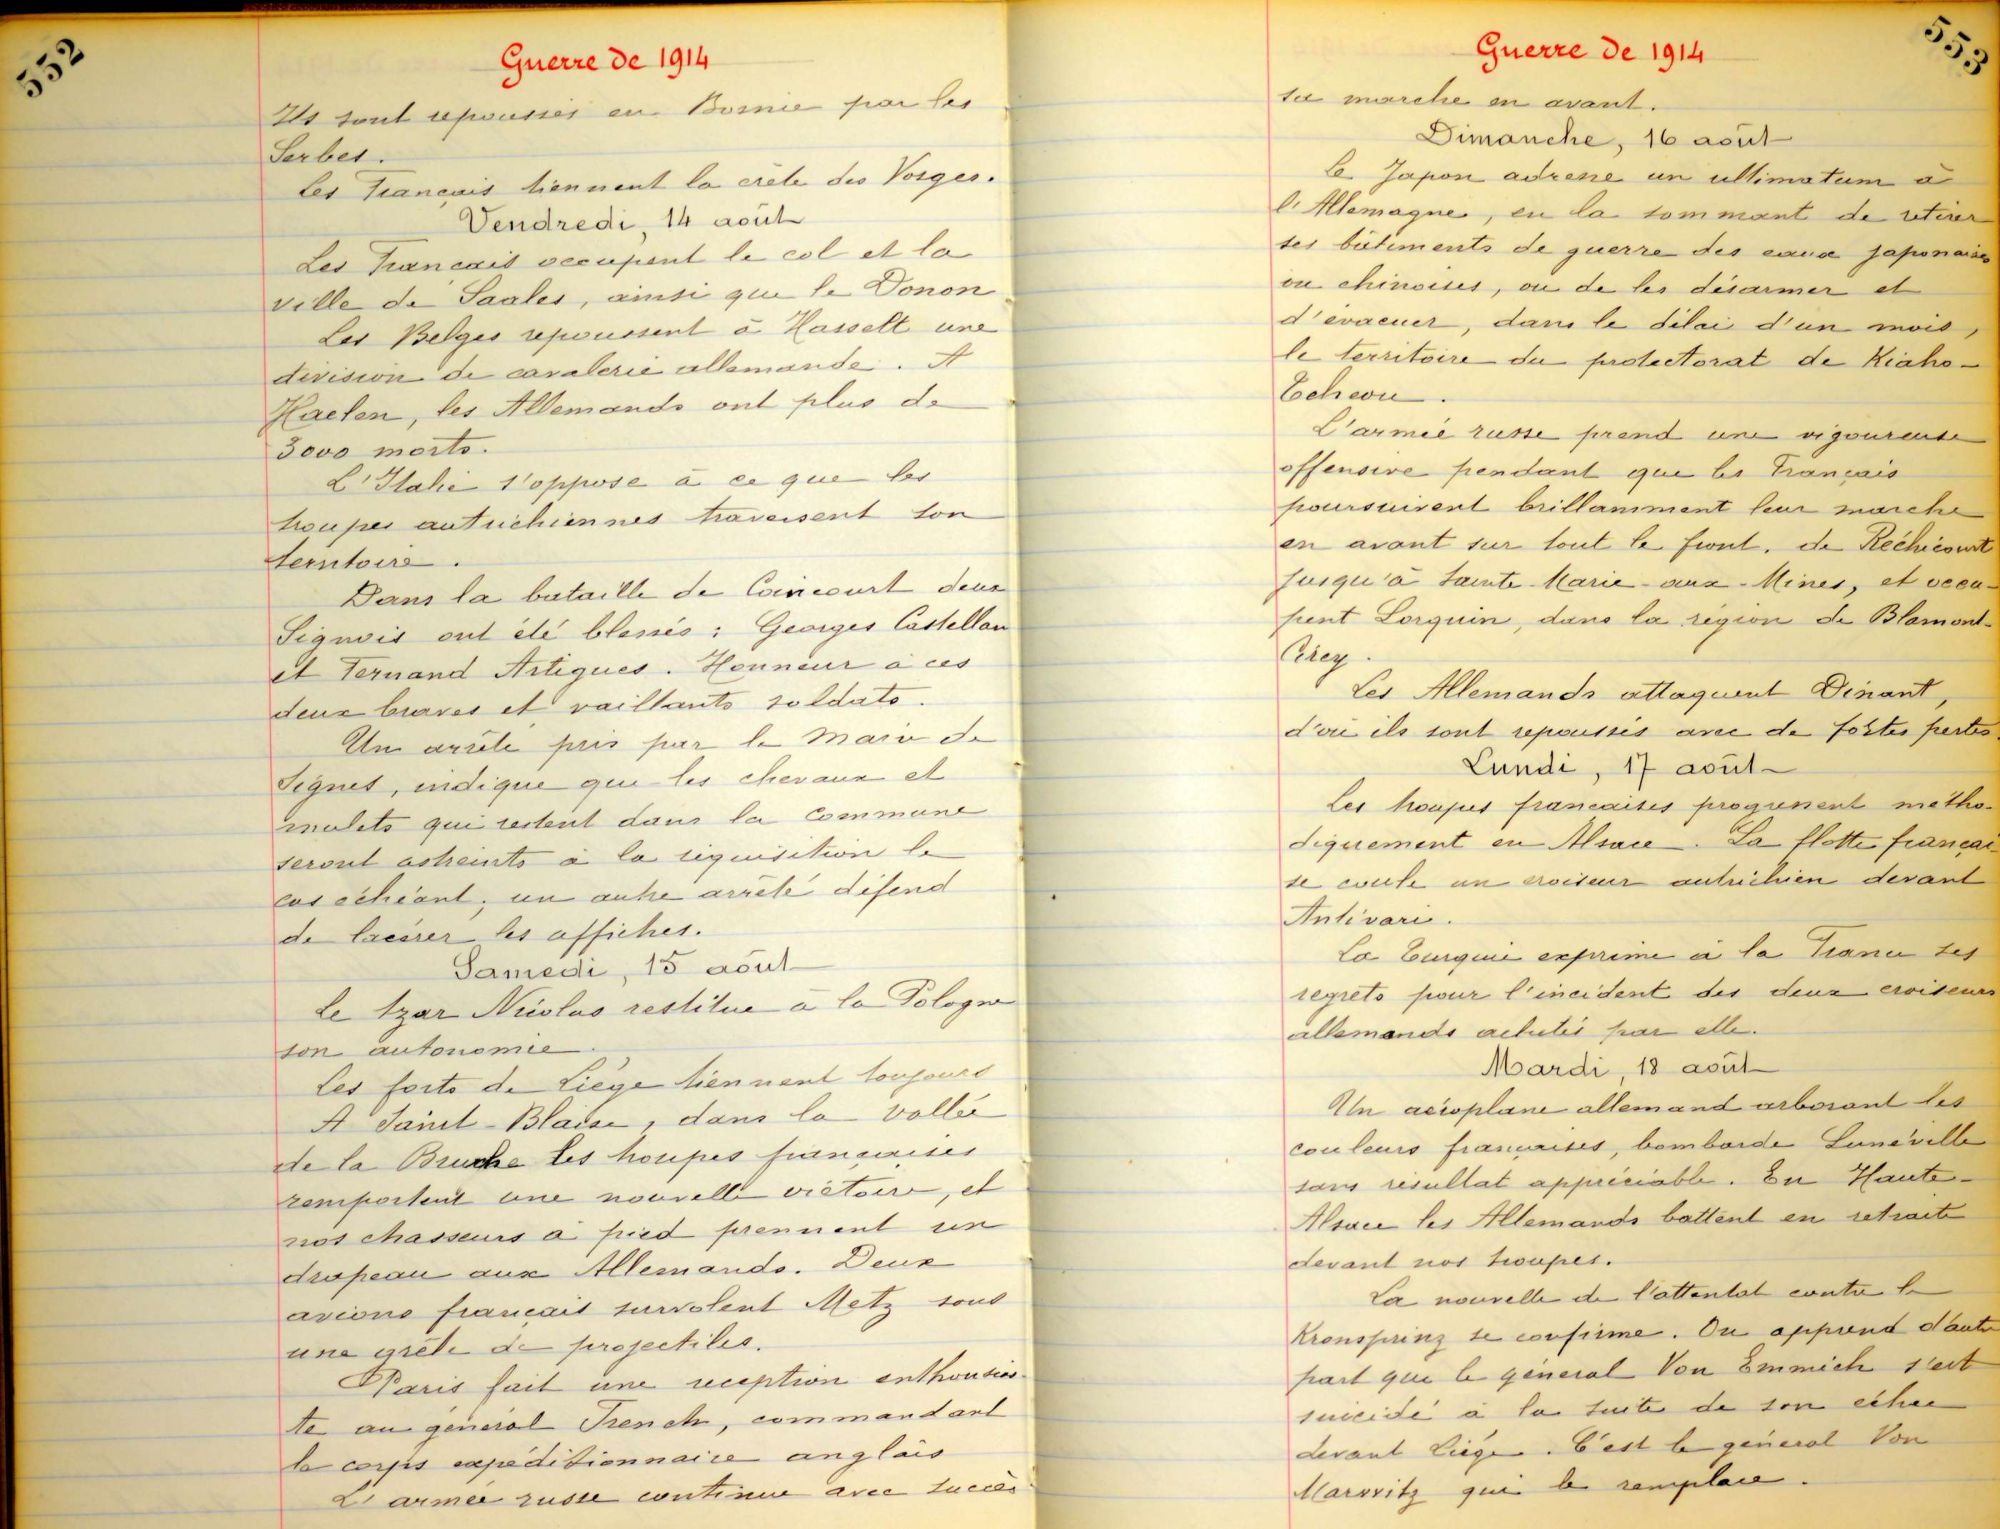 552
Guerre de 1914
Ils sont repoussés en Bosnie par les
Serbes.
Les Français tiennent la crête des Vosges.
Vendredi, 14 août
Les Français occupent le col et la
ville de Saales, ainsi que le Donon
Les Belges repoussent à Hasselt une
division de cavalerie allemande. A
Haelen, les Allemands ont plus de
3000 morts.
L'Italie s'oppose à ce que les
troupes autrichiennes traversent son
territoire.
Dans la bataille de Coincourt deux
Signois ont été blessés : Georges Castellan
et Fernand Artigues. Honneur à ces
deux braves et vaillants soldats.
Un arrêté pris par le Maire de
Signes, indique que les chevaux et
mulets qui restent dans la Commune
seront astreints à la réquisition le
cas échéant; un autre arrêté défend
de lacérer les affiches.
Samedi, 15 août
Le tzar Nicolas restitue à la Pologne
son autonomie.
Les forts de Liège tiennent toujours
A Saint-Blaise, dans la vallée
de la Bruche les troupes françaises
remportent une nouvelle victoire, et
nos chasseurs à pied prennent un
drapeau aux Allemands. Deux
avions français survolent Metz sous
une grêle de projectiles.
Paris fait une réception enthousias-
te au général French, commandant
le corps expéditionnaire anglais
L'armée russe continue avec succès
553
Guerre de 1914
sa marche en avant.
Dimanche, 16 août
Le Japon adresse un ultimatum à
l'Allemagne, en la sommant de retirer
ses bâtiments de guerre des eaux japonaises
ou chinoises, ou de les désarmer et
d'évacuer, dans le délai d'un mois,
le territoire du protectorat de Kiaho-
Tcheou.
L'armée russe prend une vigoureuse
offensive pendant que les Français
poursuivent brillamment leur marche
en avant sur tout le front, de Réchicourt
jusqu'à Sainte-Marie-aux-Mines, et occu-
pent Lorquin, dans la région de Blamont-
Cirey.
Les Allemands attaquent Dinant,
d'où ils sont repoussés avec de fortes pertes.
Lundi, 17 août
Les troupes françaises progressent métho-
diquement en Alsace. La flotte françai-
se coule un croiseur autrichien devant
Antivari.
La Turquie exprime à la France ses
regrets pour l'incident des deux croiseurs
allemands achetés par elle.
Mardi, 18 août
Un aéroplane allemand arborant les
couleurs françaises, bombarde Lunéville
sans résultat appréciable. En Haute-
Alsace les Allemands battent en retraite
devant nos troupes.
La nouvelle de l'attentat contre le
Kronsprinz se confirme. On apprend d'autre
part que le général Von Emmich s'est
suicidé à la suite de son échec
devant Liège. C'est le général Von
Marwitz qui le remplace.